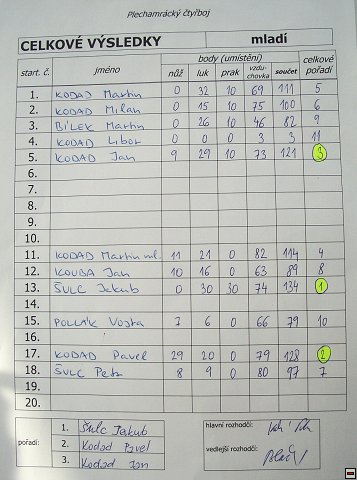 Plechamrácký čtyřboj
CELKOVÉ VÝSLEDKY mladí
start. č. jméno body (umístění) celkové pořadí
nůž luk prak vzduchovka součet
1. KODAD Martin 0 32 10 69 111 5
2. KODAD Milan 0 15 10 75 100 6
3. BÍLEK Martin 0 26 10 46 82 9
4. KODAD Libor 0 0 0 3 3 11
5. KODAD Jan 9 29 10 73 121 3
6.
7.
8.
9.
10.
11. KODAD Martin ml. 11 21 0 82 114 4
12. KOUBA Jan 10 16 0 63 89 8
13. ŠULC Jakub 0 30 30 74 134 1
14.
15. POLLÁK Vojta 7 6 0 66 79 10
16.
17. KODAD Pavel 29 20 0 79 128 2
18. ŠULC Petr 8 9 0 80 97 7
19.
20.
pořadí:
1. Šulc Jakub
2. Kodad Pavel
3. Kodad Jan
hlavní rozhodčí:
vedlejší rozhodčí: